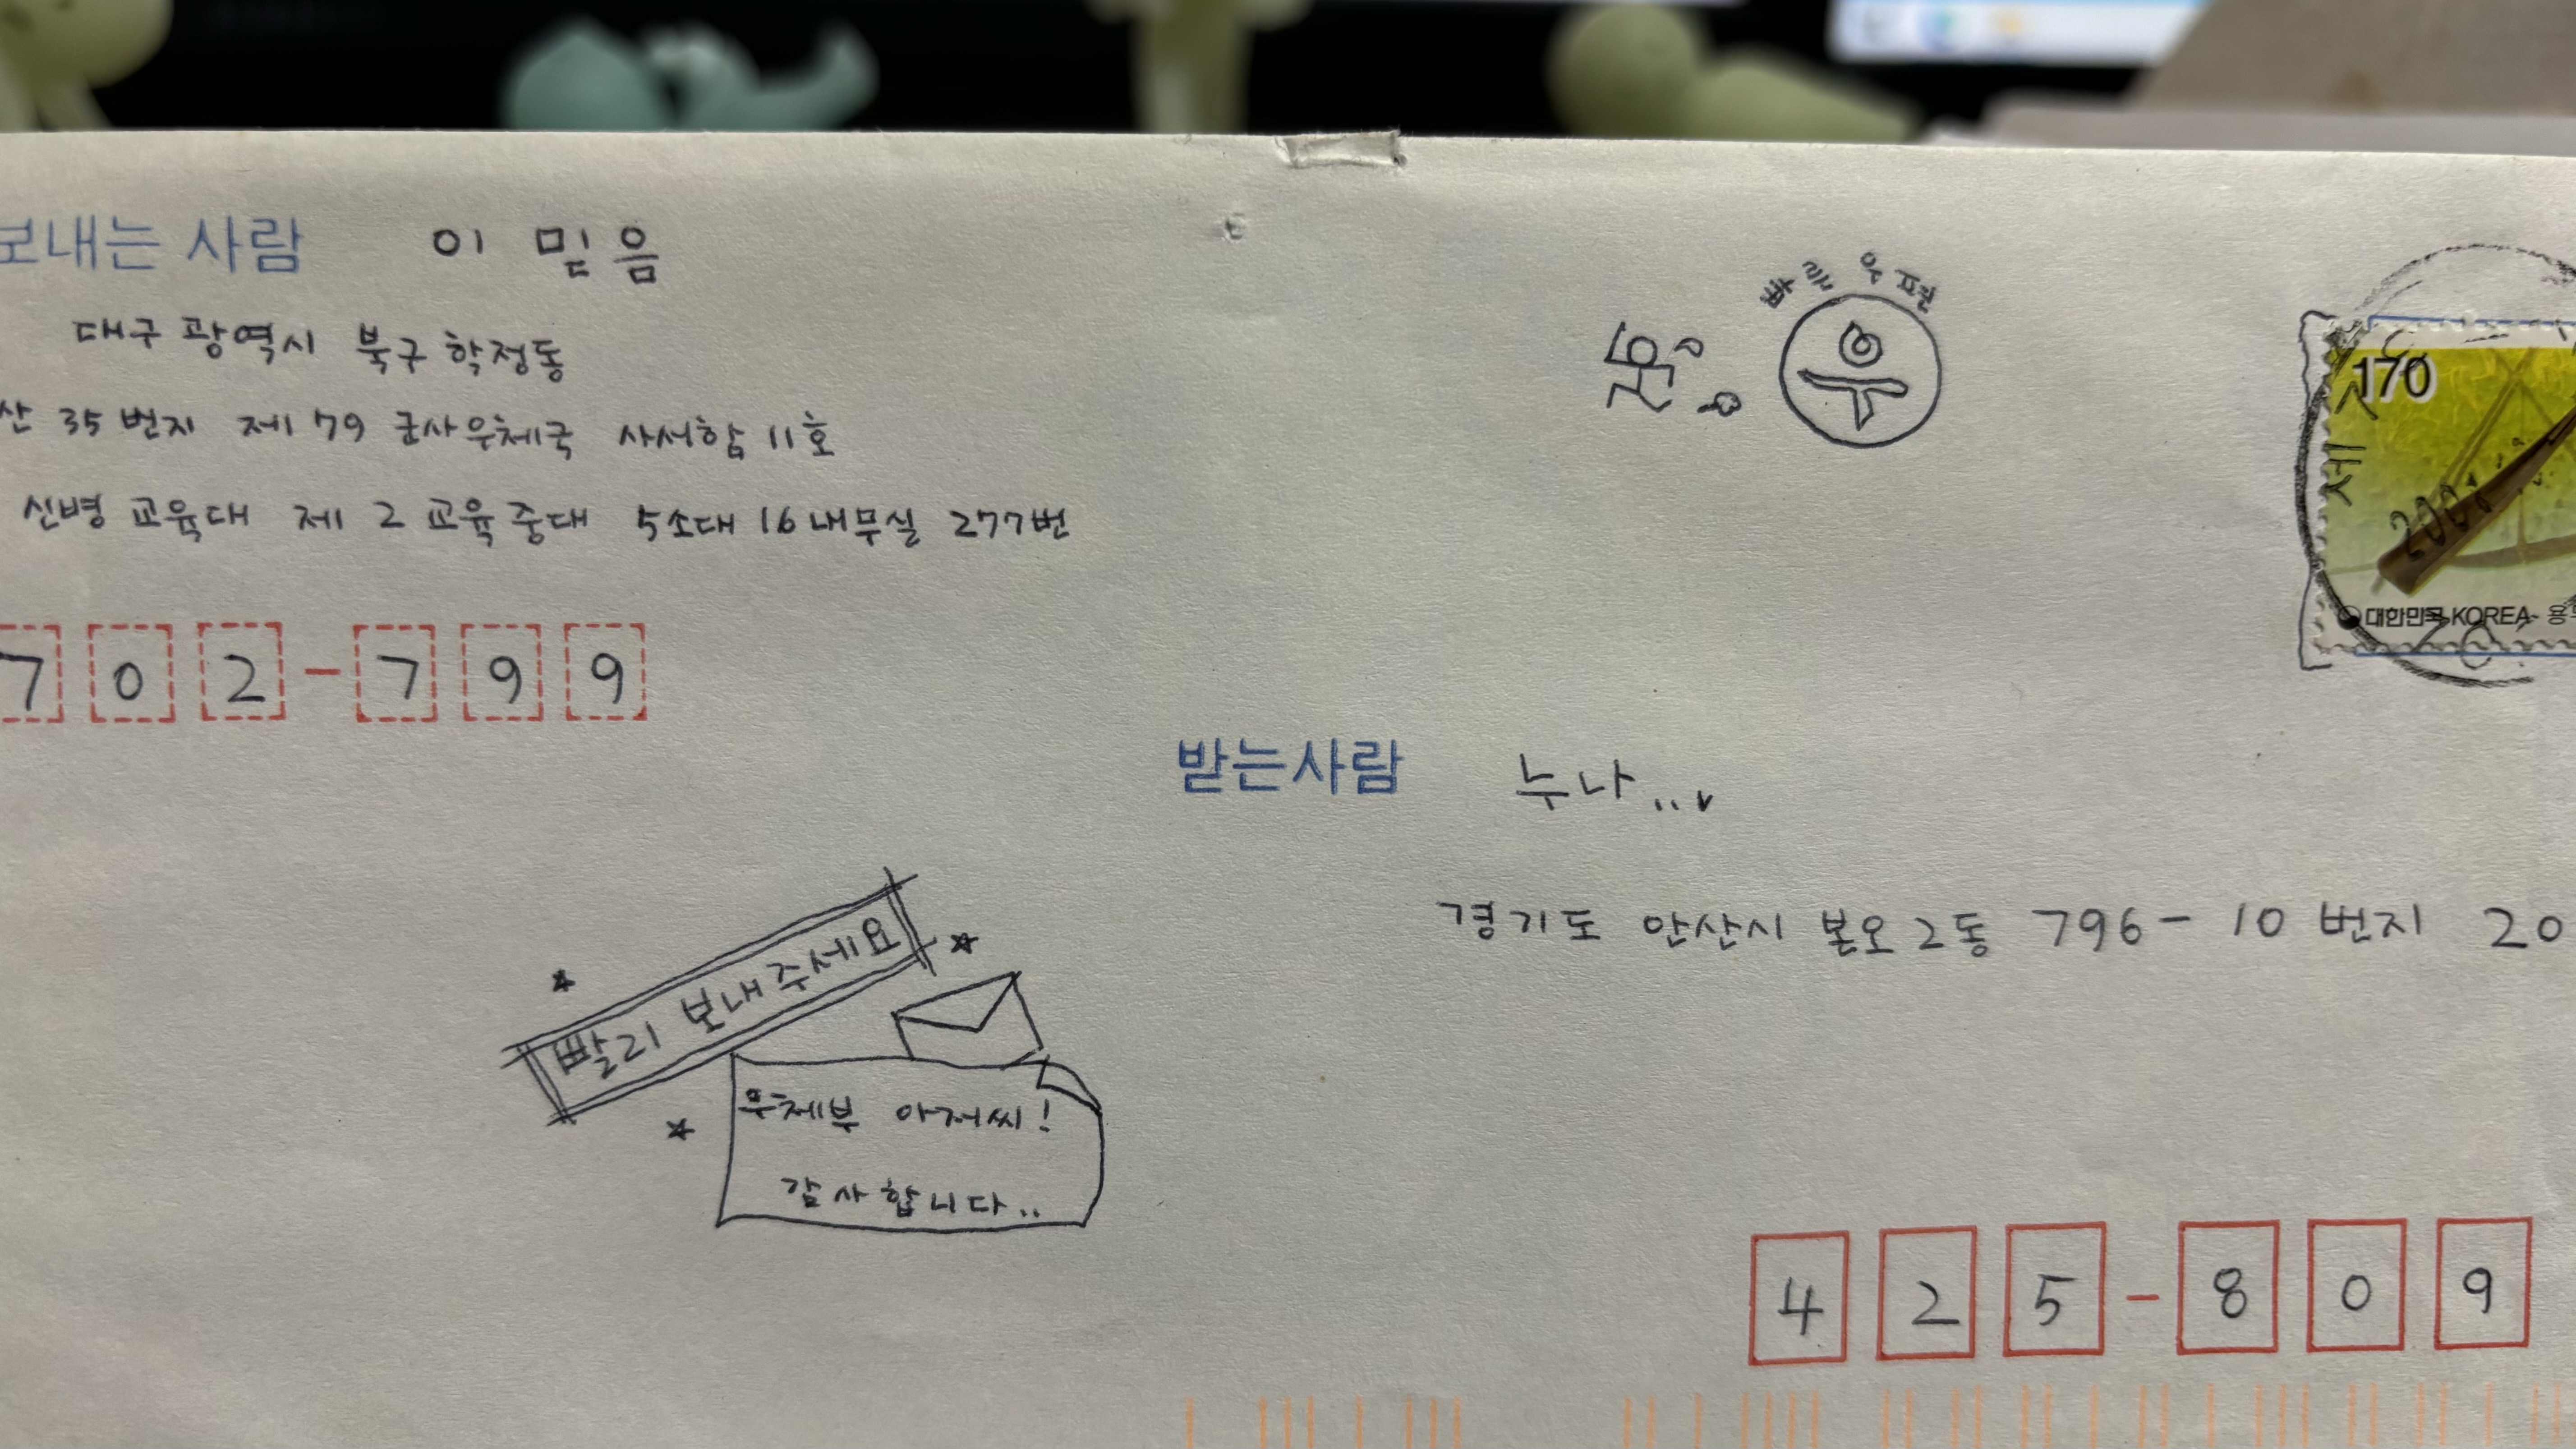 보내는 사람 이 믿음
대구 광역시 북구 학정동
산 35 번지 제 79 군사우체국 사서함 11호
신병 교육대 제 2 교육 중대 5소대 16 내무실 277번
702-799
빠른 우편
우
170
대한민국 KOREA
받는사람 누나...
경기도 안산시 본오 2동 796-10 번지 20
빨리 보내주세요
우체부 아저씨!
감사합니다..
425-809